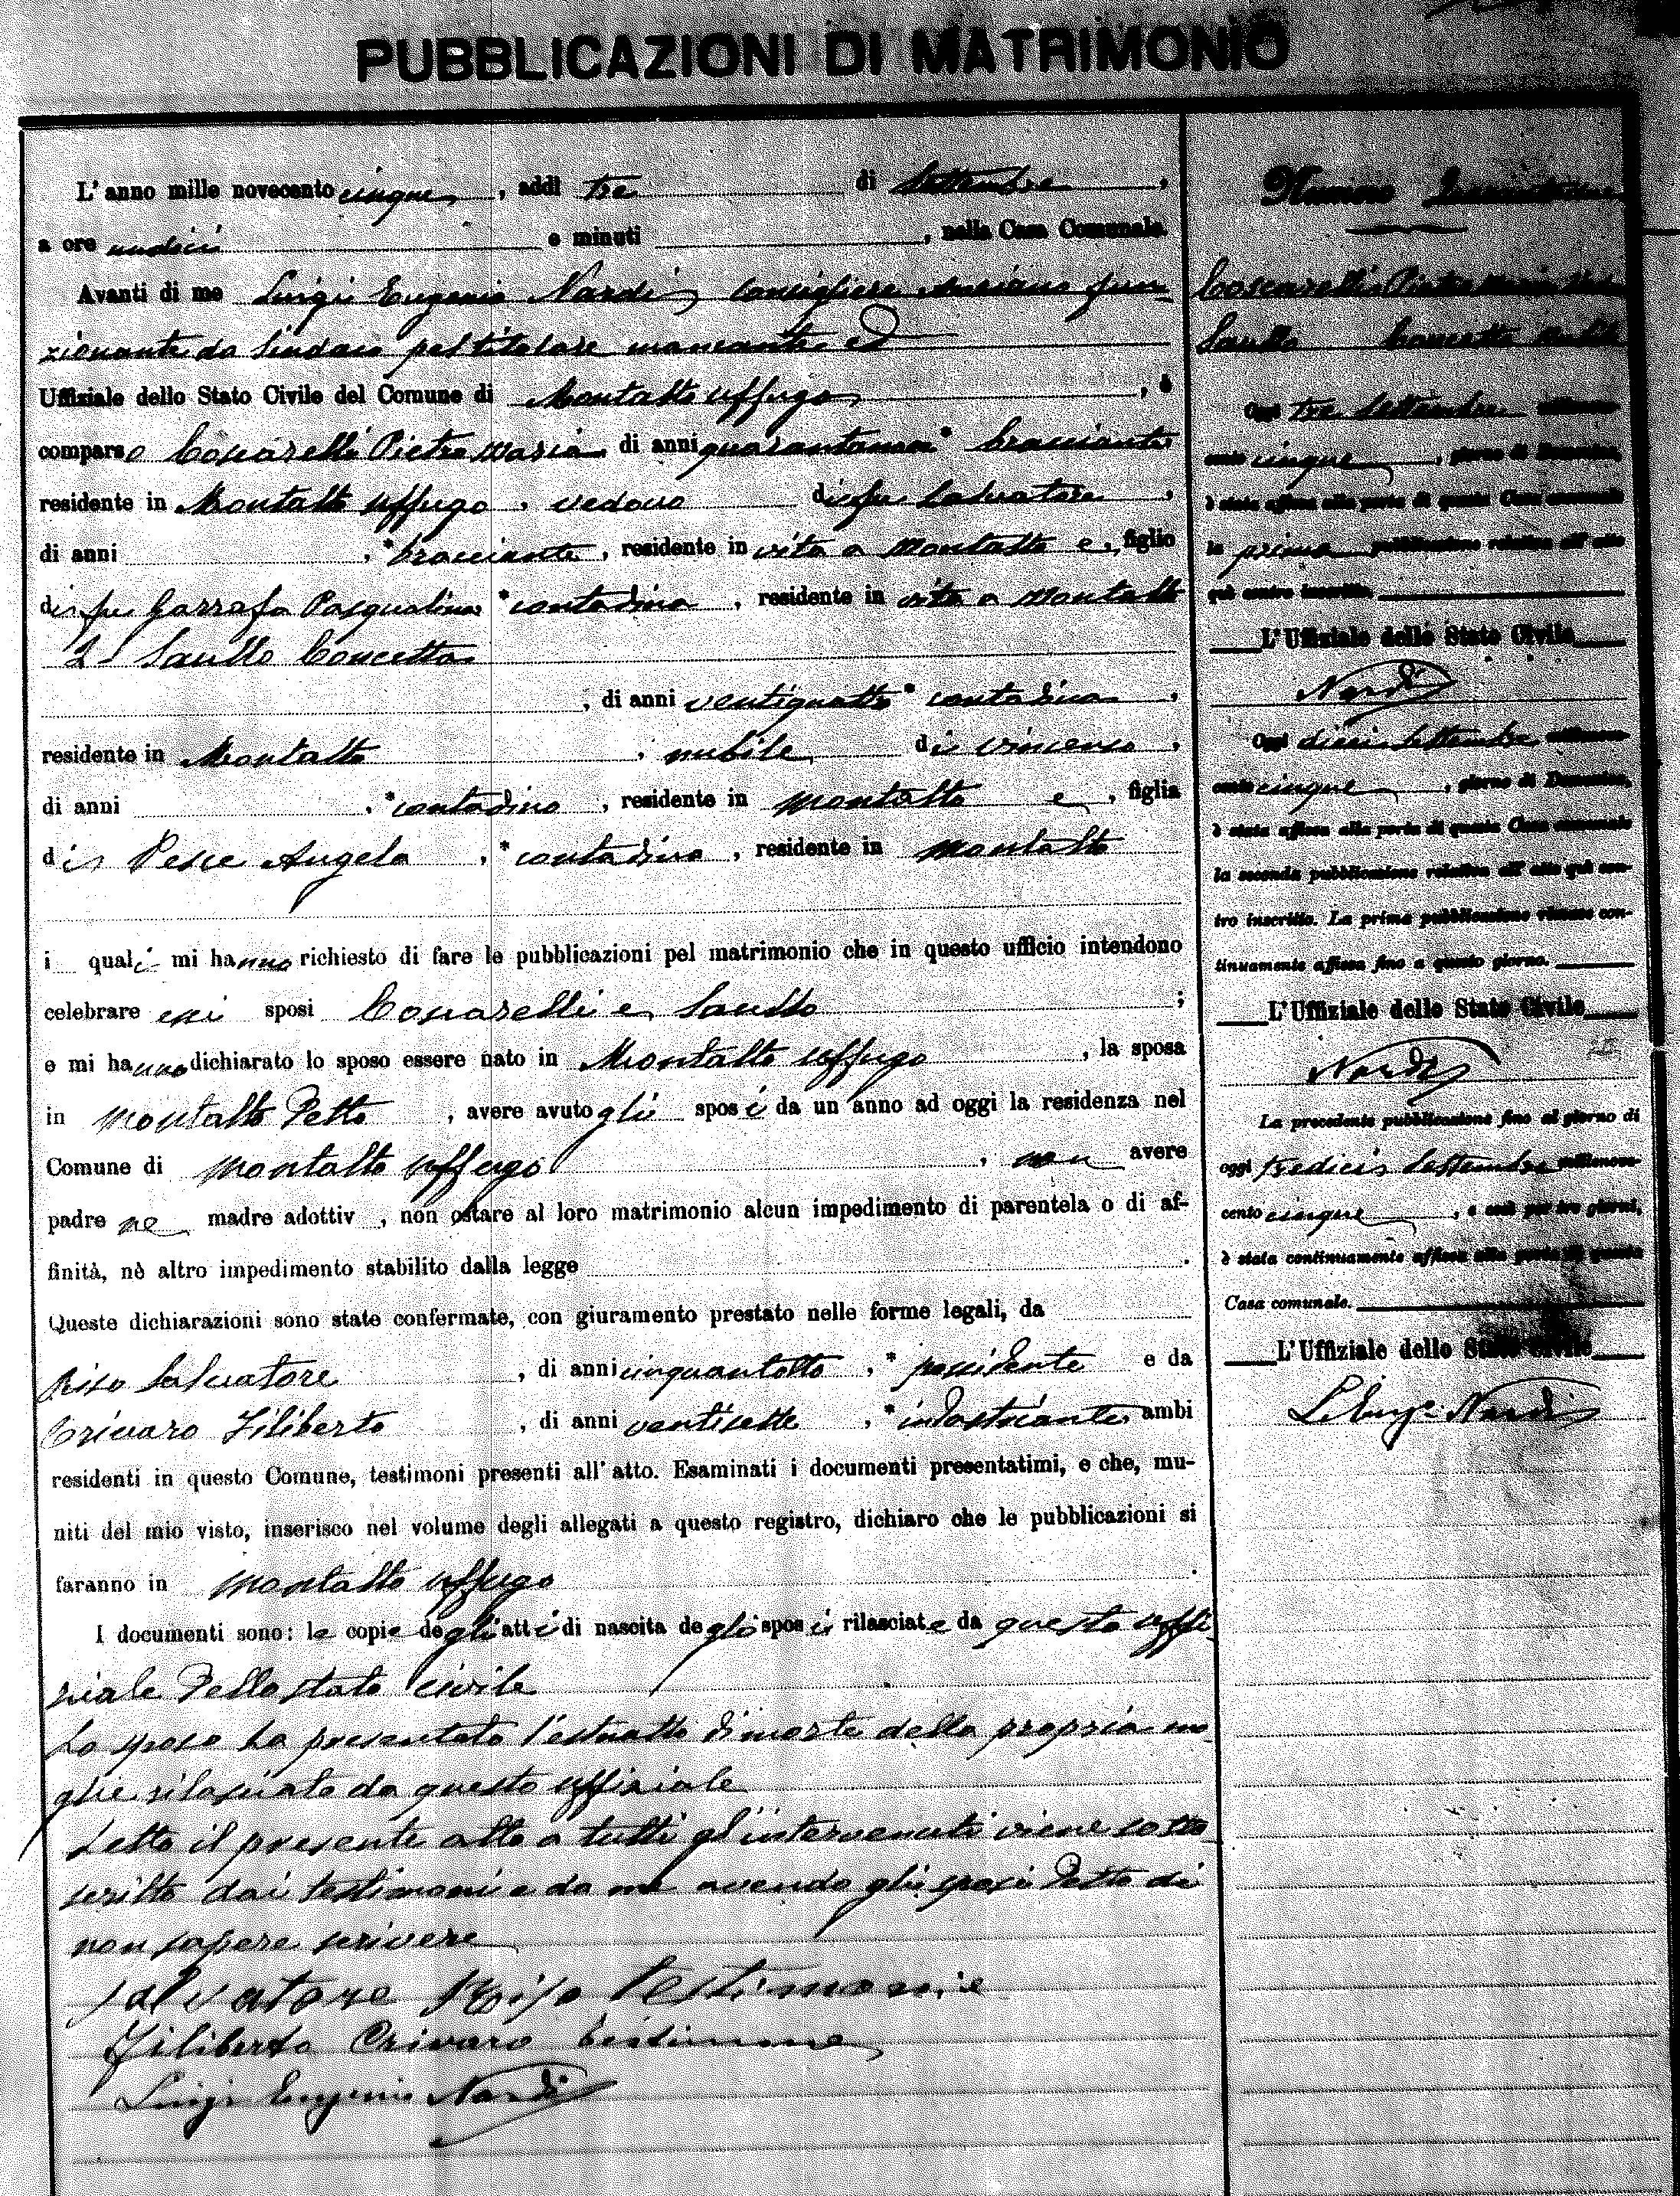 PUBBLICAZIONI DI MATRIMONIO
L'anno mille novecento cinque, addì tre di Settembre,
a ore undici e minuti , nella Casa Comunale.
Avanti di me Luigi Eugenio Nardi consigliere anziano fun-
zionante da Sindaco pel titolare mancante ed
Uffiziale dello Stato Civile del Comune di Montalto Uffugo, è
comparso Coscarelli Pietro Maria di anni * bracciante
residente in Montalto Uffugo, vedovo di fu Salvatore,
di anni , *bracciante, residente in vita a Montalto e, figlio
di fu Garrafa Pasqualina *contadina, residente in vita a Montalto
2 - Saullo Concetta
, di anni ventiquattro * contadina,
residente in Montalto , nubile di Vincenzo,
di anni , *contadino, residente in Montalto e, figlia
di Pesce Angela , *contadina, residente in Montalto
i quali mi hanno richiesto di fare le pubblicazioni pel matrimonio che in questo ufficio intendono
celebrare essi sposi Coscarelli e Saullo ;
e mi hanno dichiarato lo sposo essere nato in Montalto Uffugo , la sposa
in Montalto Detto , avere avuto gli sposi da un anno ad oggi la residenza nel
Comune di Montalto Uffugo , non avere
padre ne madre adottiv , non ostare al loro matrimonio alcun impedimento di parentela o di af-
finità, nè altro impedimento stabilito dalla legge .
Queste dichiarazioni sono state confermate, con giuramento prestato nelle forme legali, da
Riso Salvatore , di anni cinquantotto , * possidente e da
Crivaro Filiberto , di anni ventisette , *industriante ambi
residenti in questo Comune, testimoni presenti all'atto. Esaminati i documenti presentatimi, e che, mu-
niti del mio visto, inserisco nel volume degli allegati a questo registro, dichiaro che le pubblicazioni si
faranno in Montalto Uffugo .
I documenti sono: le copie degli atti di nascita degli sposi rilasciate da questo uffi
ziale dello stato civile
Lo sposo ha presentato l'estratto di morte della propria mo
glie rilasciato da questo uffiziale
Letto il presente atto a tutti gl'intervenuti viene sotto
scritto dai testimoni e da me avendo gli sposi detto di
non sapere scrivere
Salvatore Riso testimonie
Filiberto Crivaro testimone
Luigi Eugenio Nardi
Numero
Coscarelli Pietro Maria
Saullo Concetta nubile
Oggi tre Settembre millenove-
cento cinque, giorno di Domenica,
è stata affissa alla porta di questa Casa comunale
la prima pubblicazione relativa all'atto
quì contro inscritto.
L'Uffiziale dello Stato Civile
Nardi
Oggi dieci Settembre millenove-
cento cinque, giorno di Domenica,
è stata affissa alla porta di questa Casa comunale
la seconda pubblicazione relativa all'atto quì con-
tro inscritto. La prima pubblicazione rimase con-
tinuamente affissa fino a questo giorno.
L'Uffiziale dello Stato Civile
Nardi
La precedente pubblicazione fino al giorno di
oggi tredici Settembre millenove-
cento cinque, e così per tre giorni,
è stata continuamente affissa alla porta di questa
Casa comunale.
L'Uffiziale dello Stato Civile
Nardi